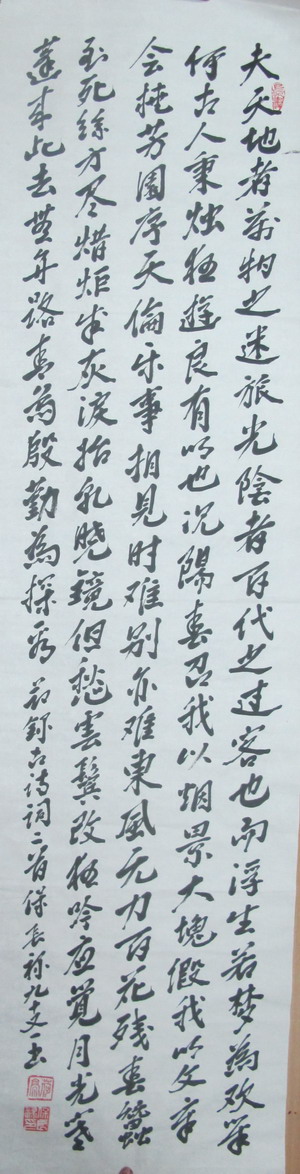 夫天地者萬物之逆旅光陰者百代之过客也而浮生若梦為欢幾
何古人秉烛夜遊良有以也况陽春召我以烟景大塊假我以文章
会桃芳園序天倫乐事相見时难别亦难東風无力百花残春蠶
到死絲方尽蜡炬成灰淚始乾晓镜但愁雲鬢改夜吟应觉月光寒
蓬来此去無多路青鳥殷勤為探看 錄古诗词二首